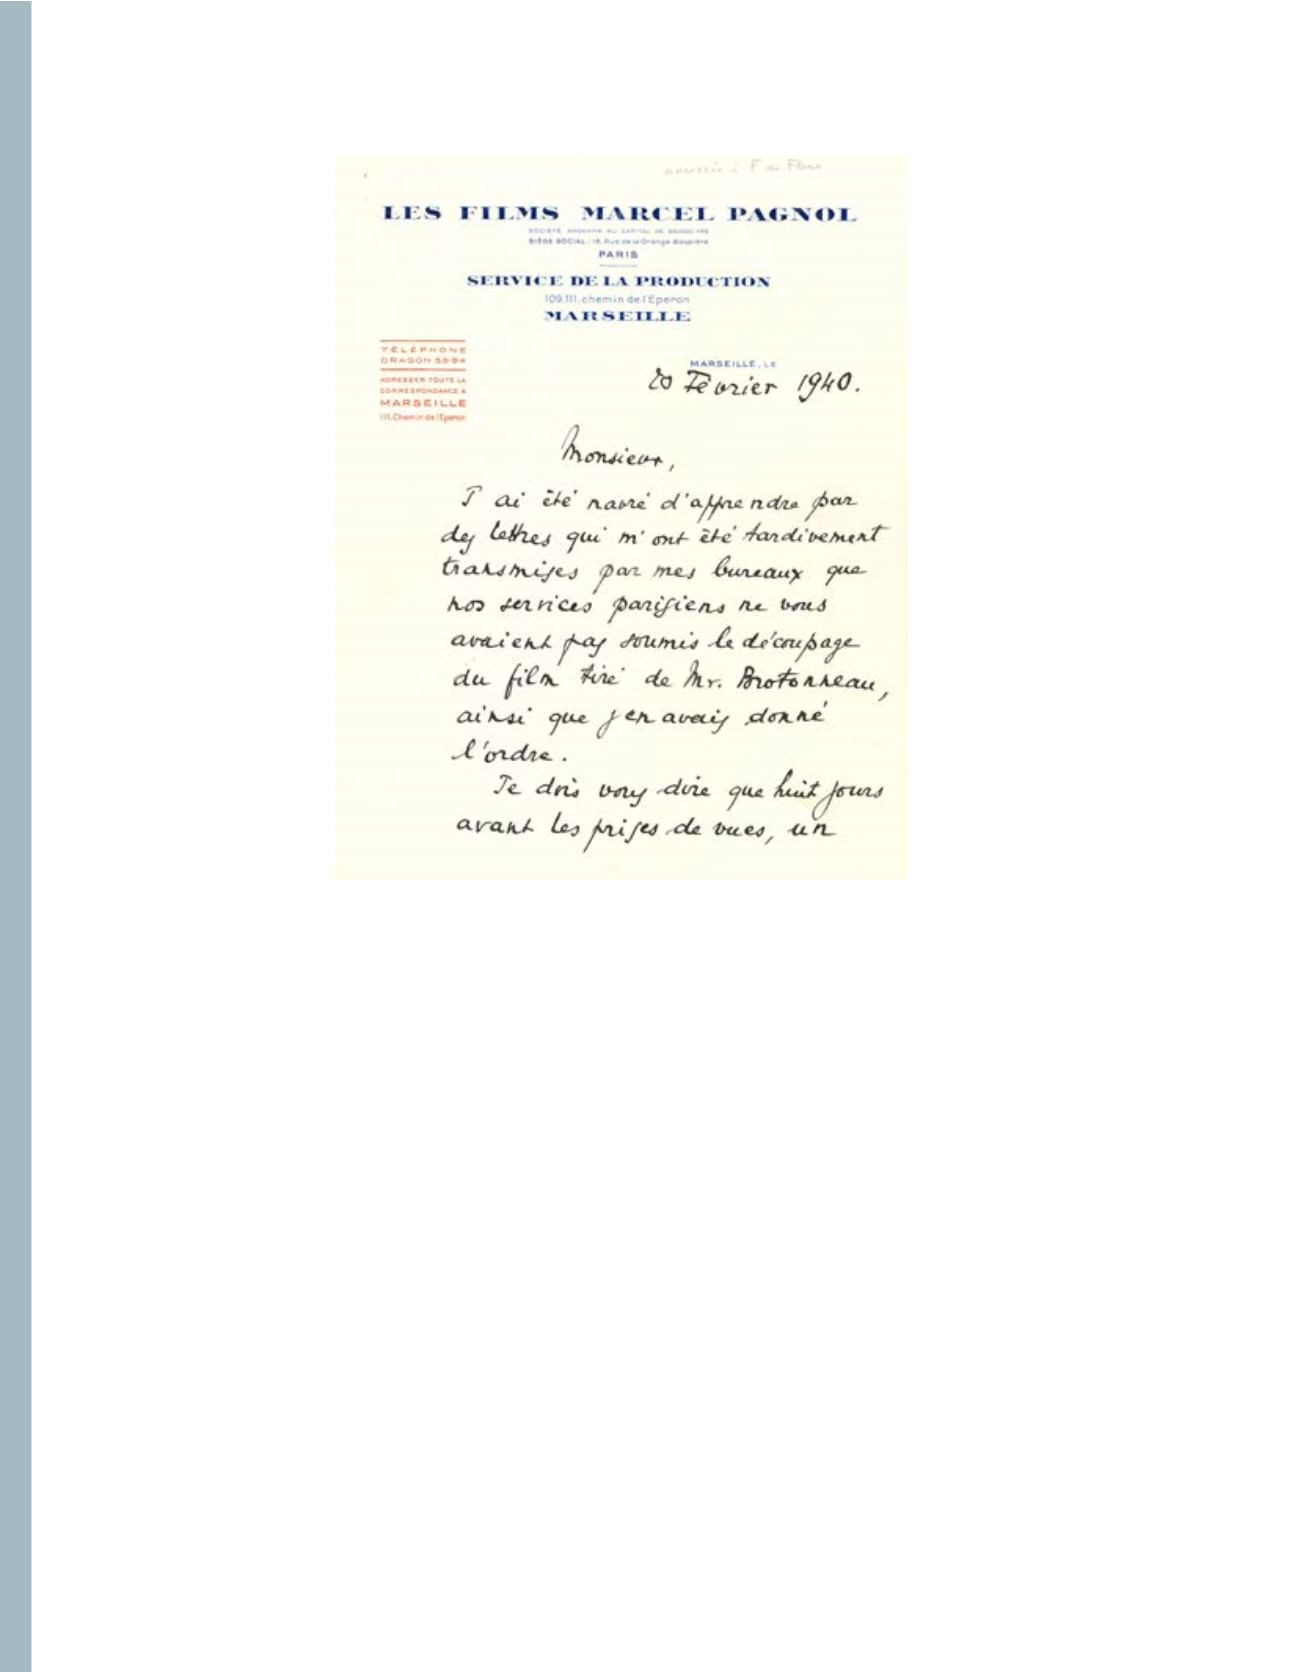 adressée à F de Flers
LES FILMS MARCEL PAGNOL
SOCIÉTÉ ANONYME AU CAPITAL DE
SIÈGE SOCIAL : 13, Rue de la Grange Batelière
PARIS
SERVICE DE LA PRODUCTION
109.111. chemin de l'Eperon
MARSEILLE
TÉLÉPHONE
DRAGON 58-84
ADRESSER TOUTE LA
CORRESPONDANCE À
MARSEILLE
111. Chemin de l'Eperon
MARSEILLE, LE
20 Février 1940.
Monsieur,
J ai été navré d'apprendre par
des lettres qui m'ont été tardivement
transmises par mes bureaux que
nos services parisiens ne vous
avaient pas soumis le découpage
du film tiré de Mr. Brotonneau,
ainsi que j'en avais donné
l'ordre.
Je dois vous dire que huit jours
avant les prises de vues, un